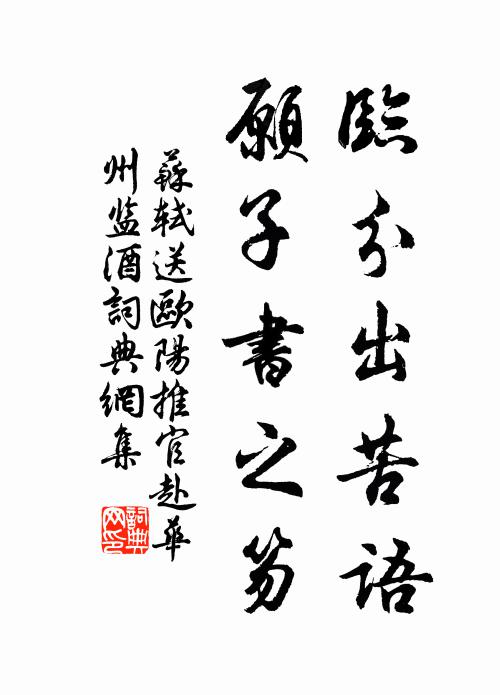 臨分出苦語
願子書之笏
蘇軾送歐陽推官赴華
州监酒詞典網集
詞典
网印